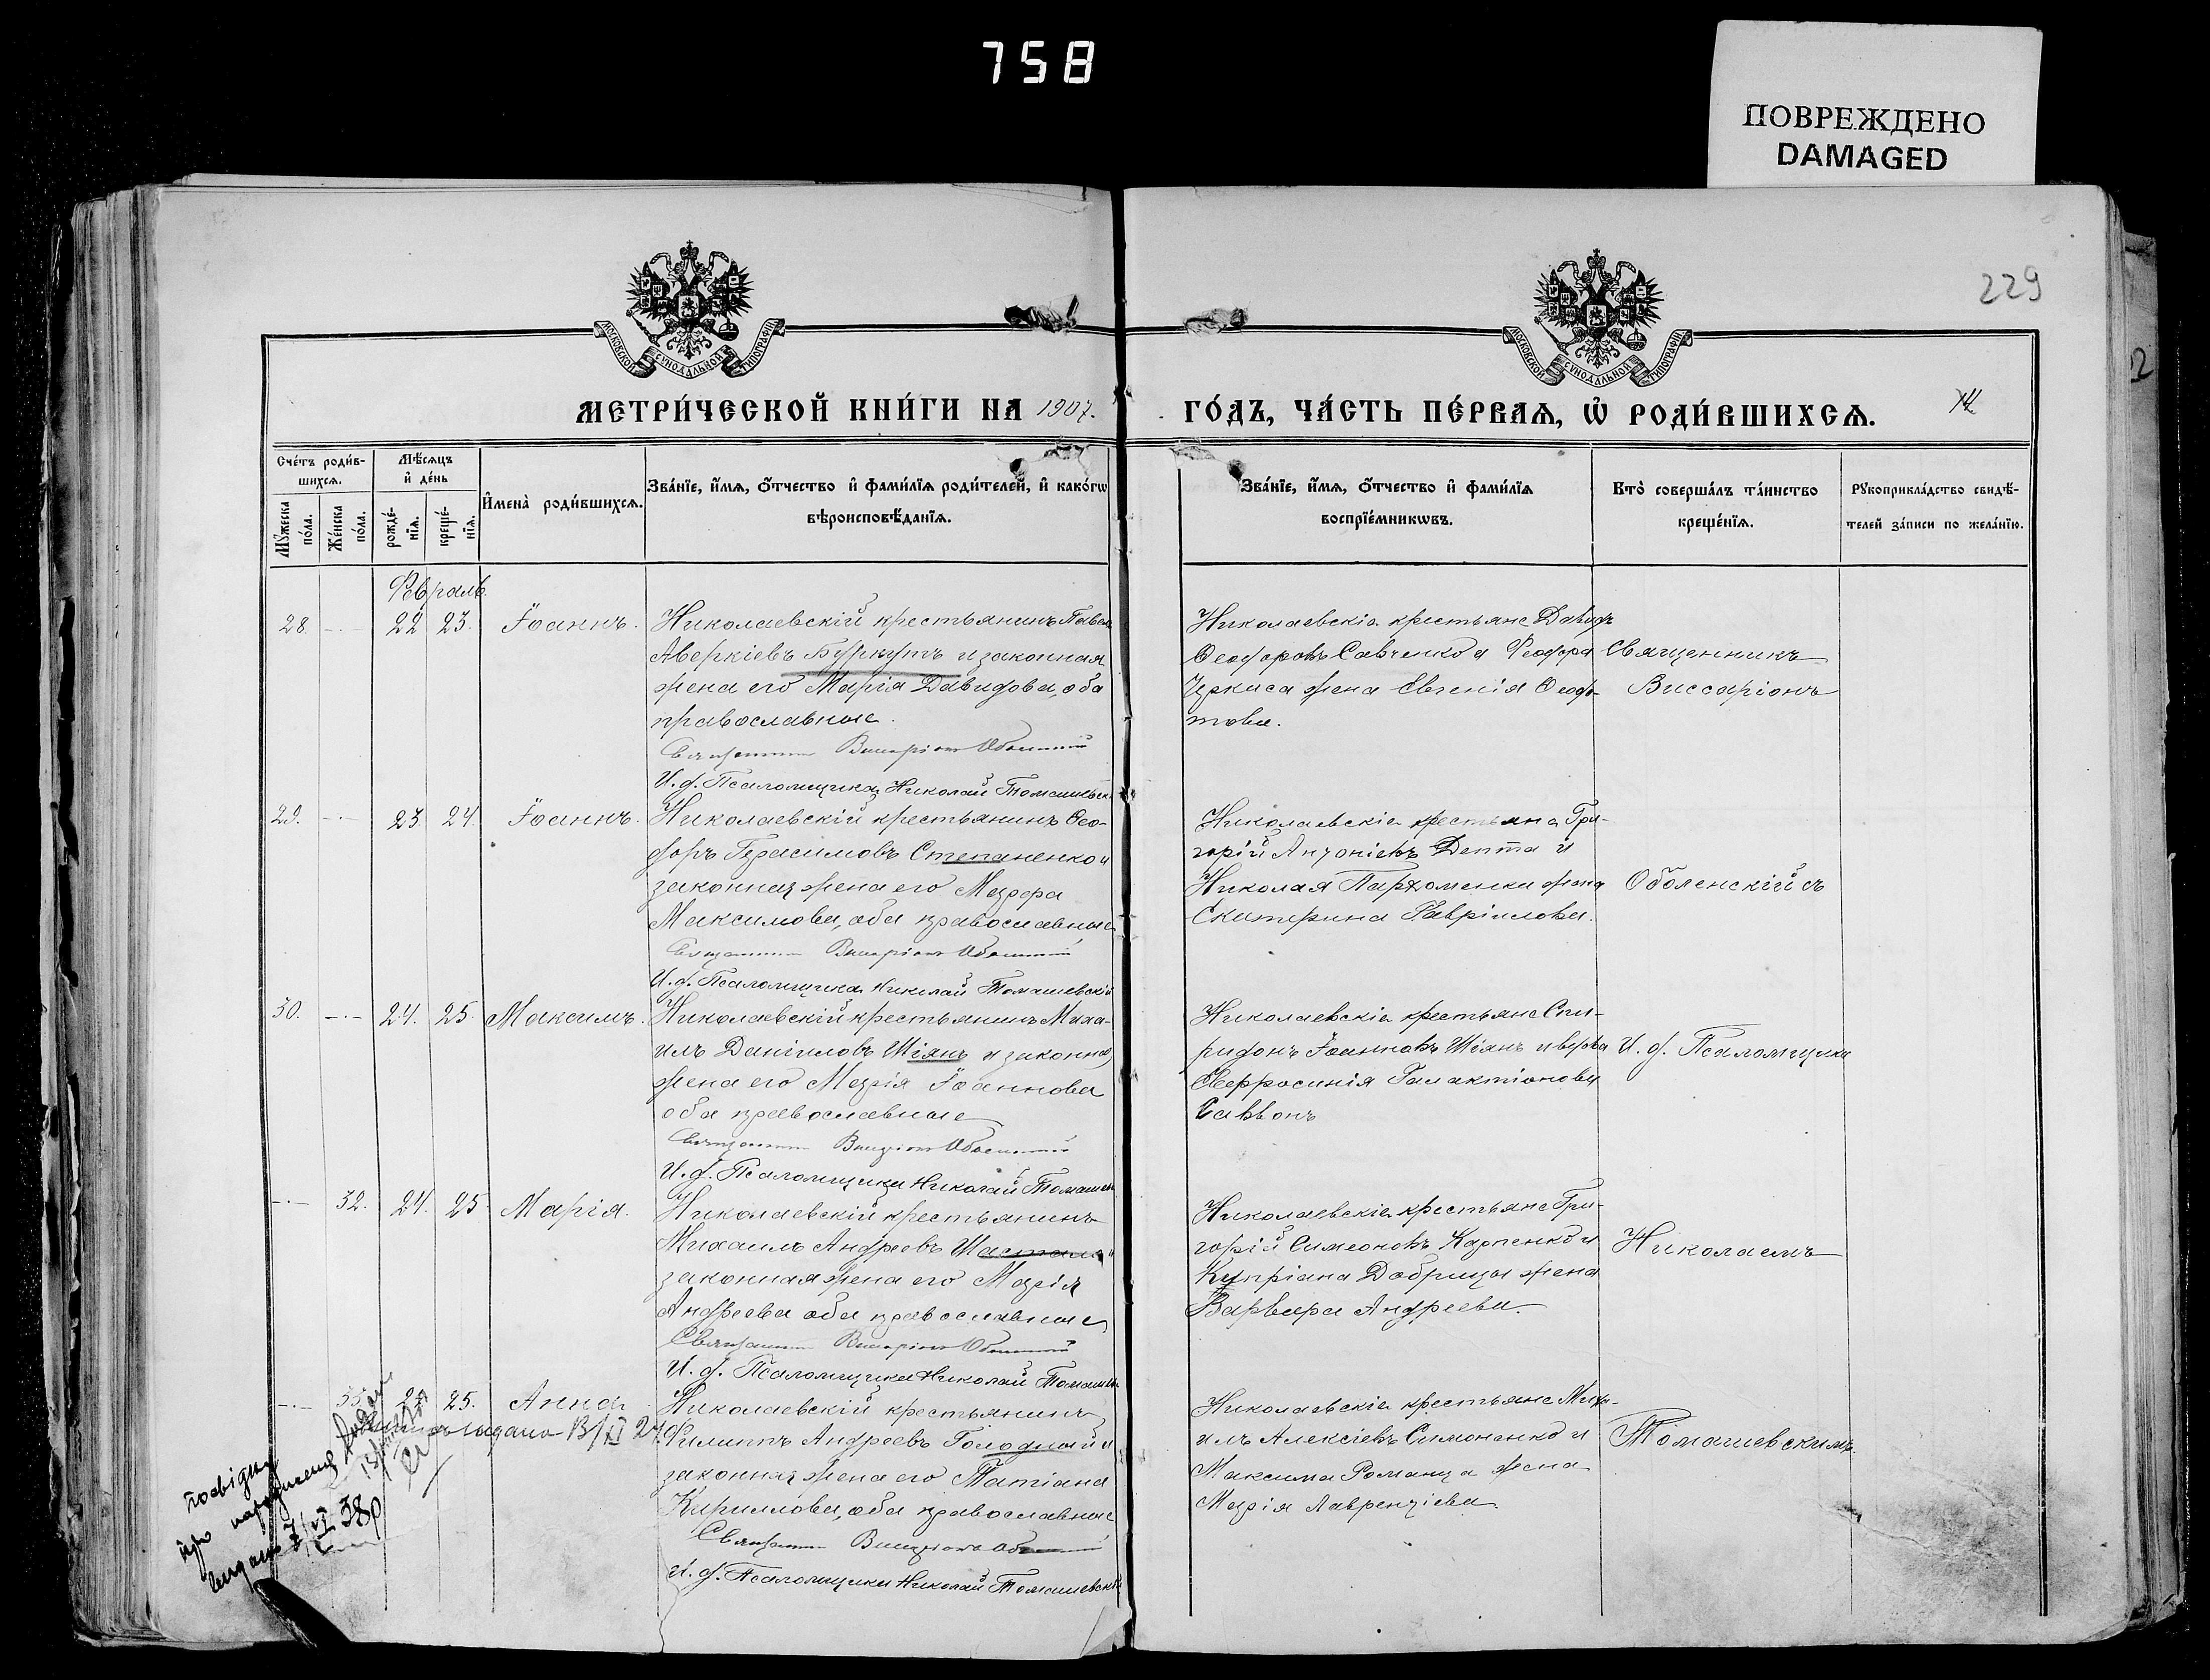 758
ПОВРЕЖДЕНО
DAMAGED
229
МОСКОВСКОЙ СѴНОДАЛЬНОЙ ТИПОГРАФІИ
МОСКОВСКОЙ СѴНОДАЛЬНОЙ ТИПОГРАФІИ
МЕТРИ́ЧЕСКОЙ КНИ́ГИ НА 1907.
ГО́ДЪ, ЧА́СТЬ ПЕ́РВАѦ, Ѡ РОДИ́ВШИХСѦ.
Сче́тъ роди́в-
шихсѧ.
Мꙋ́жеска по́ла.
Же́нска по́ла.
Мѣ́сѧцъ
и де́нь
рожде́-
нїѧ.
креще́-
нїѧ.
Имена̀ роди́вшихсѧ.
Зва́нїе, и́мѧ, о́тчество и фами́лїѧ роди́телей, и како́гѡ
вѣроисповѣ́данїѧ.
Зва́нїе, и́мѧ, о́тчество и фами́лїѧ
воспрїе́мникѡвъ.
Кто̀ соверша́лъ та́инство
креще́нїѧ.
Рꙋкоприкла́дство свидѣ́-
телей за́писи по жела́нїю.
Февраль
28. —·— 22 23. Іоаннъ. Николаевскій крестьянинъ Павелъ
Аверкіевъ Буркутъ и законная
жена его Марія Давидова, оба
православные.
Священникъ Виссаріонъ Оболенскій
И. д. Псаломщика Николай Томашевск
Николаевскіе крестьяне Давидъ
Ѳеодоровъ Савченко и Ѳеодора
жена Евгенія
това.
Священникъ
Виссаріонъ
29. —·— 23 24. Іоаннъ. Николаевскій крестьянинъ Ѳео-
доръ Герасимовъ Степаненко и
законная жена его Марѳа
Максимова, оба православные
Священникъ Виссаріонъ Оболенскій
И. д. Псаломщика Николай Томашевскій
Николаевскіе крестьяне Гри-
горій Антоніевъ Депта и
Николая Пархоменка жена
Екатерина Гавріилова.
Оболенскій съ
30. —·— 24. 25. Максимъ. Николаевскій крестьянинъ Миха-
илъ Даніиловъ Шіянъ и законная
жена его Марія Іоаннова
оба православные
Священникъ Виссаріонъ Оболенскій
И. д. Псаломщика Николай Томашев
Николаевскіе крестьяне Спи-
ридонъ Іоанновъ Шіянъ и
Евфросинія Галактіонова
И. д. Псаломщика
—·— 32. 24. 25 Марія. Николаевскій крестьянинъ
Михаилъ Андреевъ
законная жена его Марія
Андреева оба православные
Священникъ Виссаріонъ Оболенскій
И. д. Псаломщика Николай Томашев
Николаевскіе крестьяне Гри-
горій Симеоновъ Карпенко и
Купріана Добрицы жена
Варвара Андреева.
Николаемъ
—·— 33. 25. Анна Николаевскій крестьянинъ
Филиппъ Андреевъ Голодный и
законная жена его Татіана
Кириллова, оба православные
Священникъ Виссаріонъ Оболенскій
И. д. Псаломщика Николай Томашевскій
Николаевскіе крестьяне Миха-
илъ Алексіевъ Симоненко и
Максима Романца жена
Марія Лаврентіева.
Томашевскимъ.
довідка
про народження
видана 7/VI 38р